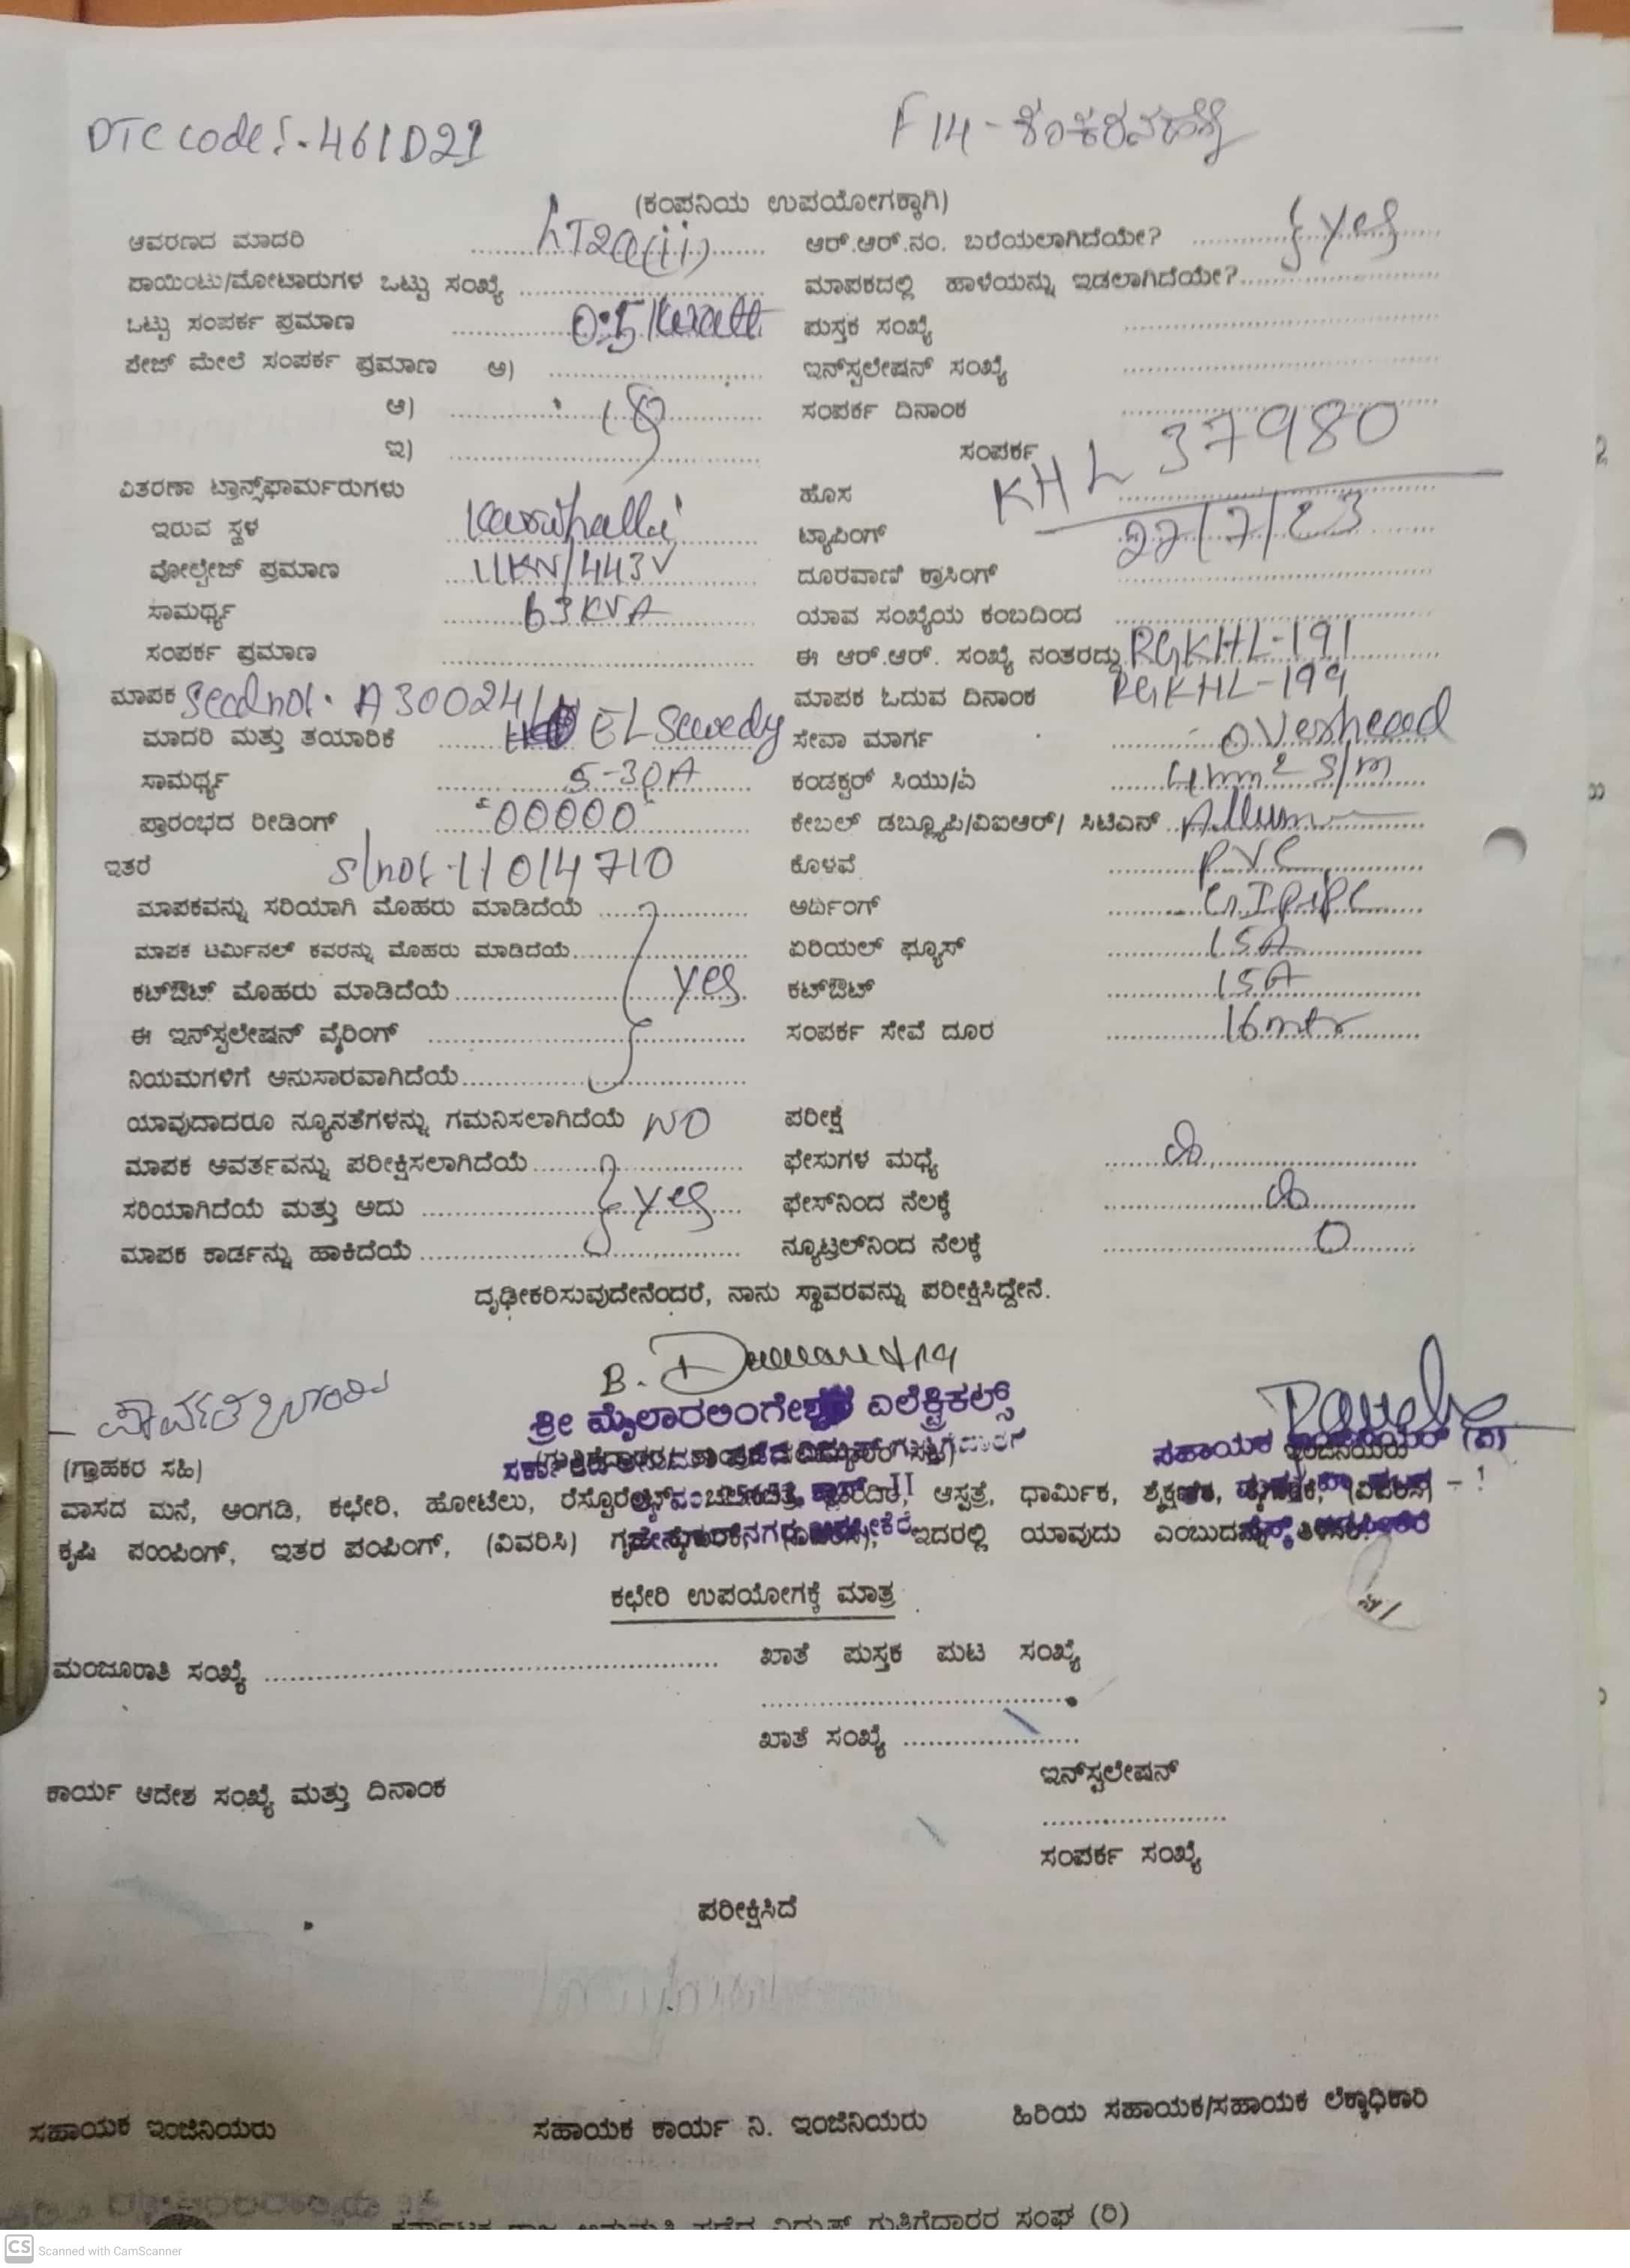 DTC code :- 461D21
F14 -
(ಕಂಪನಿಯ ಉಪಯೋಗಕ್ಕಾಗಿ)
ಆವರಣದ ಮಾದರಿ LT2a(ii) ಆರ್.ಆರ್.ನಂ. ಬರೆಯಲಾಗಿದೆಯೇ? yes
ಪಾಯಿಂಟು/ಮೋಟಾರುಗಳ ಒಟ್ಟು ಸಂಖ್ಯೆ ಮಾಪಕದಲ್ಲಿ ಹಾಳೆಯನ್ನು ಇಡಲಾಗಿದೆಯೇ?
ಒಟ್ಟು ಸಂಪರ್ಕ ಪ್ರಮಾಣ 0.5 Kwatt ಪುಸ್ತಕ ಸಂಖ್ಯೆ
ಪೇಜ್ ಮೇಲೆ ಸಂಪರ್ಕ ಪ್ರಮಾಣ ಅ) ಇನ್‌ಸ್ಟಲೇಷನ್ ಸಂಖ್ಯೆ
ಆ) ಸಂಪರ್ಕ ದಿನಾಂಕ
ಇ) ಸಂಪರ್ಕ KHL 37980
ವಿತರಣಾ ಟ್ರಾನ್ಸ್‌ಫಾರ್ಮರುಗಳು ಹೊಸ
ಇರುವ ಸ್ಥಳ ಟ್ಯಾಪಿಂಗ್ 22/7/23
ವೋಲ್ಟೇಜ್ ಪ್ರಮಾಣ 11KV/443V ದೂರವಾಣಿ ಕ್ರಾಸಿಂಗ್
ಸಾಮರ್ಥ್ಯ 63 KVA ಯಾವ ಸಂಖ್ಯೆಯ ಕಂಬದಿಂದ
ಸಂಪರ್ಕ ಪ್ರಮಾಣ ಈ ಆರ್.ಆರ್. ಸಂಖ್ಯೆ ನಂತರದ್ದು RGKHL-191
ಮಾಪಕ Seal no:- A30024 ಮಾಪಕ ಓದುವ ದಿನಾಂಕ RGKHL-199
ಮಾದರಿ ಮತ್ತು ತಯಾರಿಕೆ EL Sewedy ಸೇವಾ ಮಾರ್ಗ Overhead
ಸಾಮರ್ಥ್ಯ 5-30A ಕಂಡಕ್ಟರ್ ಸಿಯು/ಎ 4mm2 S/m
ಪ್ರಾರಂಭದ ರೀಡಿಂಗ್ "00000" ಕೇಬಲ್ ಡಬ್ಲ್ಯೂಪಿ/ವಿಐಆರ್/ ಸಿಟಿಎನ್ Allum
ಇತರೆ s/no:- 11014710 ಕೊಳವೆ PVC
ಮಾಪಕವನ್ನು ಸರಿಯಾಗಿ ಮೊಹರು ಮಾಡಿದೆಯೆ ಅರ್ದಿಂಗ್ G.I Pipe
ಮಾಪಕ ಟರ್ಮಿನಲ್ ಕವರನ್ನು ಮೊಹರು ಮಾಡಿದೆಯೆ ಏರಿಯಲ್ ಫ್ಯೂಸ್ 15A
ಕಟ್‌ಔಟ್ ಮೊಹರು ಮಾಡಿದೆಯೆ yes ಕಟ್‌ಔಟ್ 15A
ಈ ಇನ್‌ಸ್ಟಲೇಷನ್ ವೈರಿಂಗ್ ಸಂಪರ್ಕ ಸೇವೆ ದೂರ 16 mtr
ನಿಯಮಗಳಿಗೆ ಅನುಸಾರವಾಗಿದೆಯೆ
ಯಾವುದಾದರೂ ನ್ಯೂನತೆಗಳನ್ನು ಗಮನಿಸಲಾಗಿದೆಯೆ NO ಪರೀಕ್ಷೆ
ಮಾಪಕ ಆವರ್ತವನ್ನು ಪರೀಕ್ಷಿಸಲಾಗಿದೆಯೆ ಫೇಸುಗಳ ಮಧ್ಯೆ
ಸರಿಯಾಗಿದೆಯೆ ಮತ್ತು ಅದು yes ಫೇಸ್‌ನಿಂದ ನೆಲಕ್ಕೆ
ಮಾಪಕ ಕಾರ್ಡನ್ನು ಹಾಕಿದೆಯೆ ನ್ಯೂಟ್ರಲ್‌ನಿಂದ ನೆಲಕ್ಕೆ 0
ದೃಢೀಕರಿಸುವುದೇನೆಂದರೆ, ನಾನು ಸ್ಥಾವರವನ್ನು ಪರೀಕ್ಷಿಸಿದ್ದೇನೆ.
ಶ್ರೀ ಮೈಲಾರಲಿಂಗೇಶ್ವರ ಎಲೆಕ್ಟ್ರಿಕಲ್ಸ್
(ಗ್ರಾಹಕರ ಸಹಿ) ಸಹಾಯಕ ಇಂಜಿನಿಯರ್
ವಾಸದ ಮನೆ, ಅಂಗಡಿ, ಕಛೇರಿ, ಹೋಟೆಲು, ಆಸ್ಪತ್ರೆ, ಧಾರ್ಮಿಕ, (ವಿವರಿಸಿ)
ಕೃಷಿ ಪಂಪಿಂಗ್, ಇತರ ಪಂಪಿಂಗ್, (ವಿವರಿಸಿ) ಇದರಲ್ಲಿ ಯಾವುದು
ಕಛೇರಿ ಉಪಯೋಗಕ್ಕೆ ಮಾತ್ರ
ಮಂಜೂರಾತಿ ಸಂಖ್ಯೆ ಖಾತೆ ಪುಸ್ತಕ ಪುಟ ಸಂಖ್ಯೆ
ಖಾತೆ ಸಂಖ್ಯೆ
ಇನ್‌ಸ್ಟಲೇಷನ್
ಕಾರ್ಯ ಆದೇಶ ಸಂಖ್ಯೆ ಮತ್ತು ದಿನಾಂಕ
ಸಂಪರ್ಕ ಸಂಖ್ಯೆ
ಪರೀಕ್ಷಿಸಿದೆ
ಸಹಾಯಕ ಇಂಜಿನಿಯರು ಸಹಾಯಕ ಕಾರ್ಯ ನಿ. ಇಂಜಿನಿಯರು ಹಿರಿಯ ಸಹಾಯಕ/ಸಹಾಯಕ ಲೆಕ್ಕಾಧಿಕಾರಿ
ಕರ್ನಾಟಕ ರಾಜ್ಯ ಅನುಮತಿ ಪಡೆದ ವಿದ್ಯುತ್ ಗುತ್ತಿಗೆದಾರರ ಸಂಘ (ರಿ)
CS Scanned with CamScanner